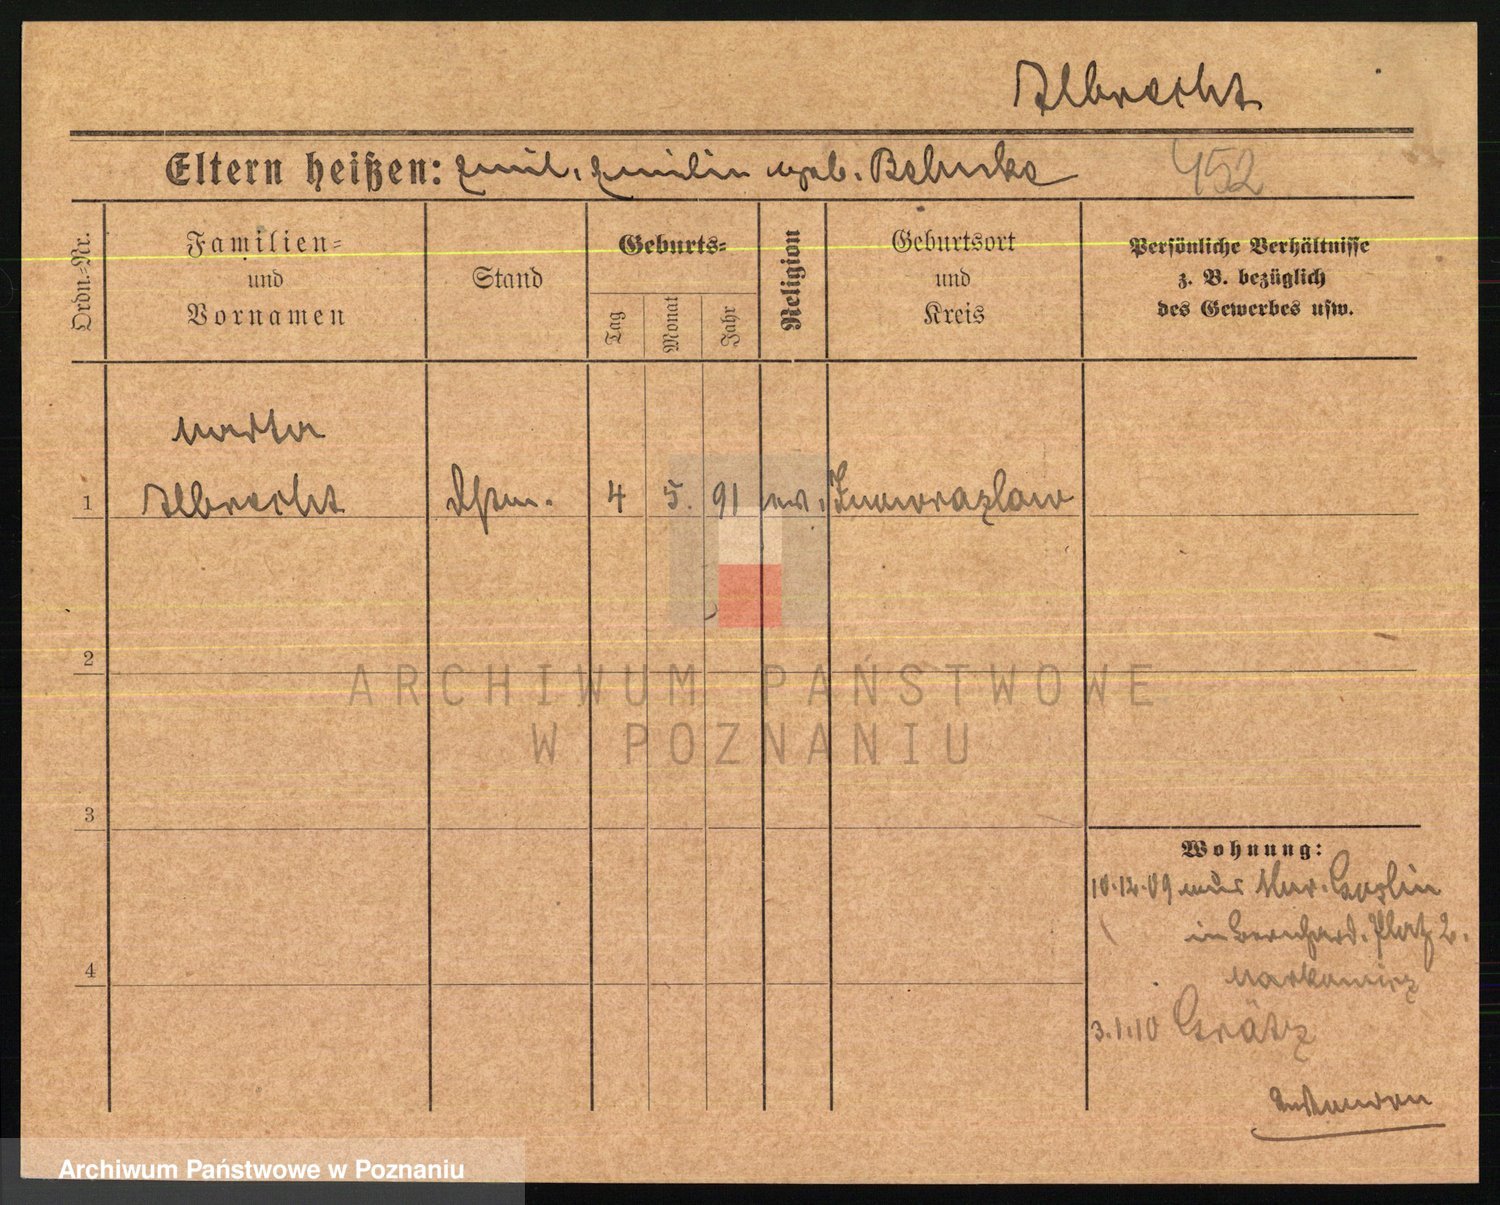 Albrecht
Eltern heißen: Emil, Emilie geb. Behnke 452
Ordn.=Nr.
Familien=
und
Vornamen
Stand
Geburts=
Tag
Monat
Jahr
Religion
Geburtsort
und
Kreis
Persönliche Verhältnisse
z. B. bezüglich
des Gewerbes usw.
Martha
1 Albrecht 4 5. 91 ev. Inowrazlaw
2
3
4
Wohnung:
10.12.09 aus Mur. Goslin
in Bernhard. Platz 2.
Markowicz
3.1.10 Grätz
ARCHIWUM PAŃSTWOWE
W POZNANIU
Archiwum Państwowe w Poznaniu